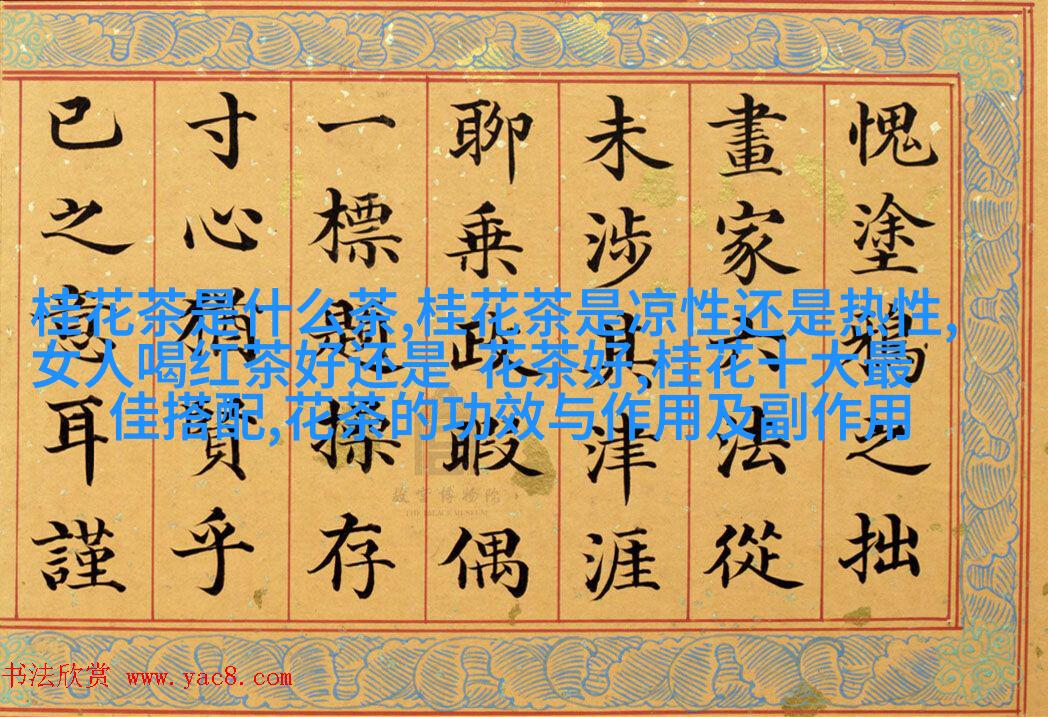 愧塗鴉之拙
畫家六法從
未涉其津涯
聊乘政暇偶
一標 操存
寸心 乎
已之 耳謹
桂花茶是什么茶,桂花茶是凉性还是热性,
女人喝红茶好还是 花茶好,桂花十大最
佳搭配,花茶的功效与作用及副作用
故宫博物院
THE PALACE MUSEUM
书法欣赏 www.yac8.com